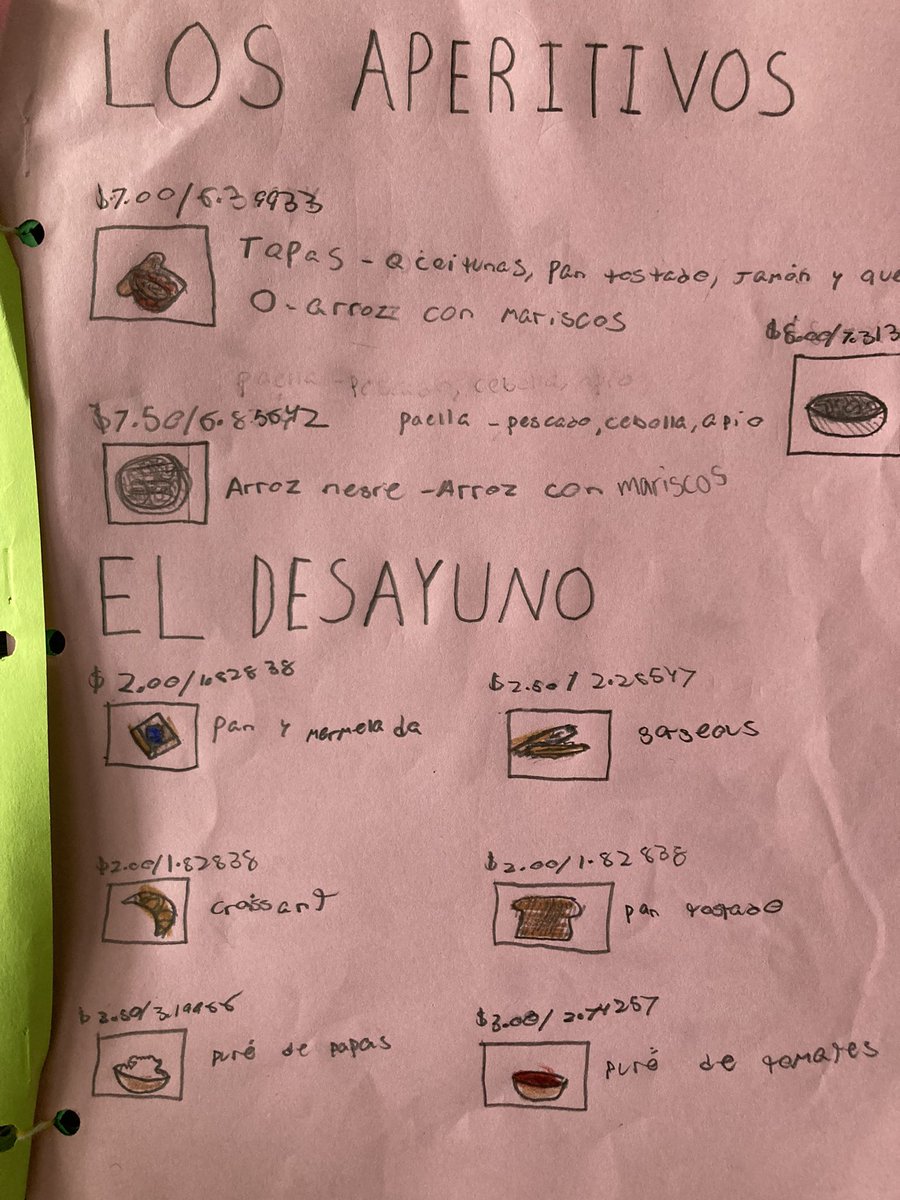 LOS APERITIVOS
$7.00/6.39933
Tapas - aceitunas, pan tostado, Jamón y que
O - arroz con mariscos
$8.00/7.313
paella - pescado, cebolla, apio
$7.50/6.85642
paella - pescado, cebolla, apio
Arroz negre - Arroz con mariscos
EL DESAYUNO
$2.00/1.82838
$2.50/2.28547
pan y mermelada
gageous
$2.00/1.82838
$2.00/1.82838
croissant
pan tostado
3.19966
$3.00/2.74257
puré de papas
puré de tomates